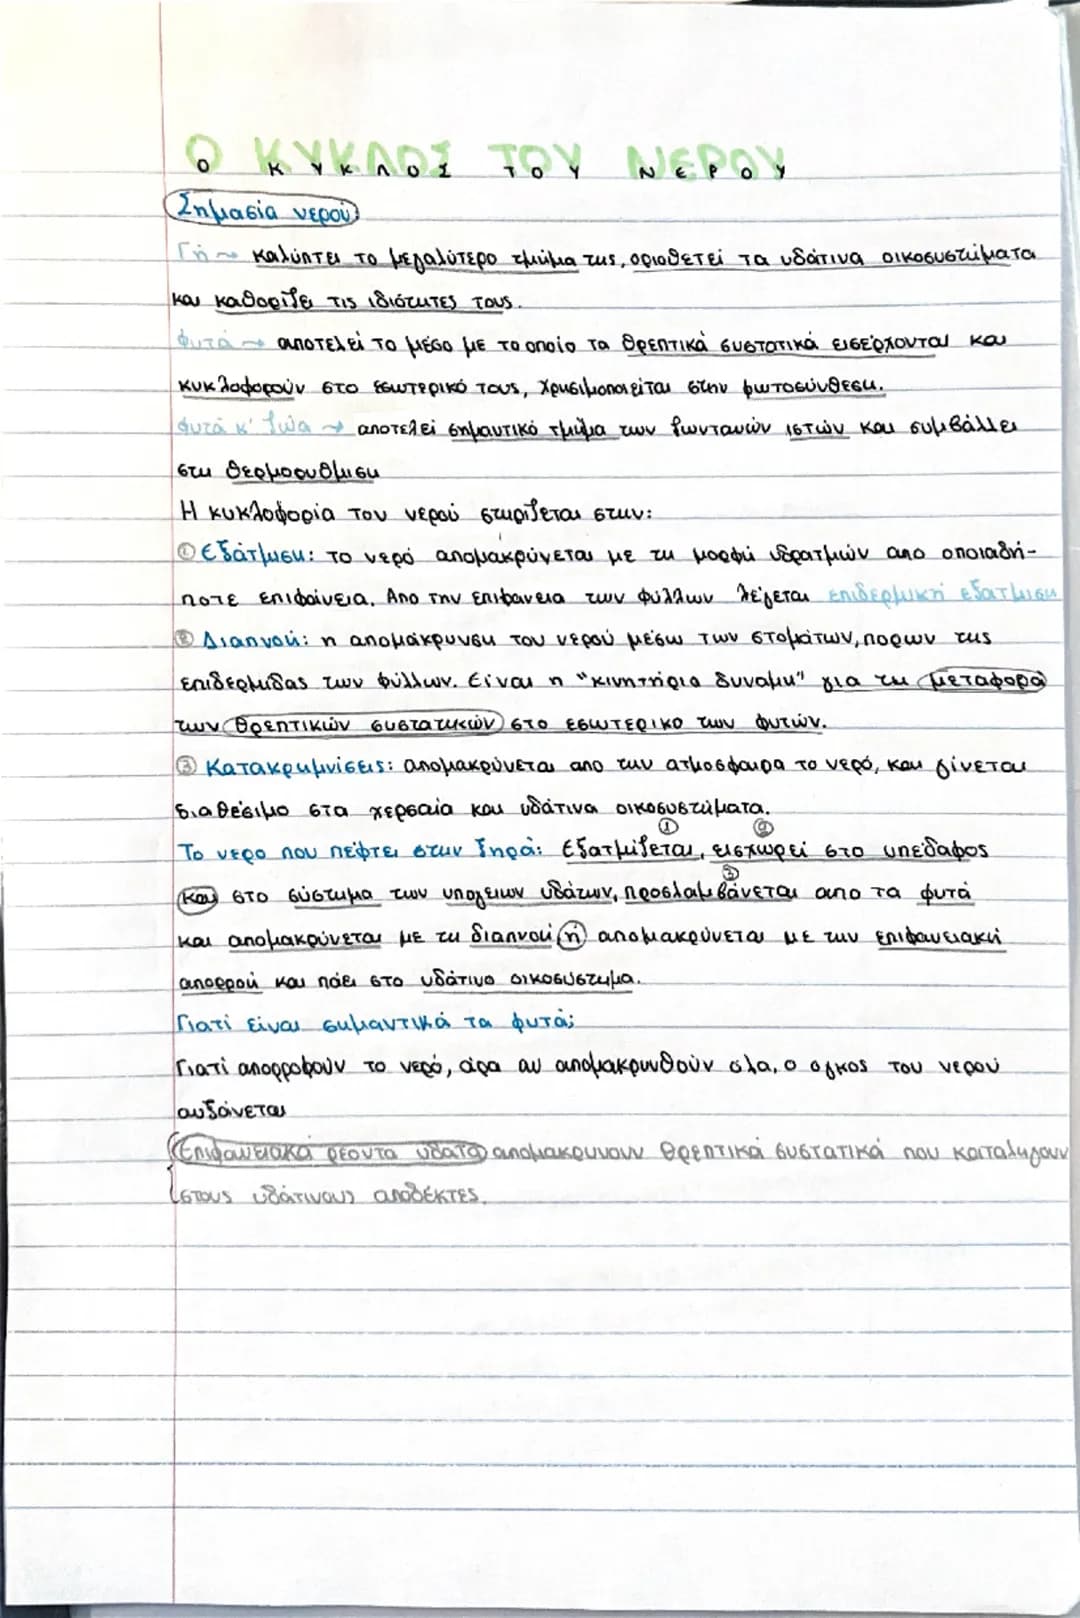 Ο ΚΥΚΛΟΣ ΤΟΥ ΝΕΡΟΥ
Σημασία νερού
Γη → καλύπτει το μεγαλύτερο τμήμα της, οριοθετεί τα υδάτινα οικοσυστήματα
και καθορίζει τις ιδιότητες τους.
Φυτά → αποτελεί το μέσο με το οποίο τα θρεπτικά συστατικά εισέρχονται και
κυκλοφορούν στο εσωτερικό τους, χρησιμοποιείται στην φωτοσύνθεση.
Φυτά κ' ζώα → αποτελεί σημαντικό τμήμα των ζωντανών ιστών και συμβάλλει
στη θερμορυθμιση
Η κυκλοφορία του νερού στηρίζεται στην:
① Εξάτμιση: το νερό απομακρύνεται με τη μορφή υδρατμών απο οποιαδή-
ποτε επιφαίνεια. Απο την επιφανεια των φύλλων λέγεται επιδερμική εξατμιση
② Διαπνοή: η απομάκρυνση του νερού μέσω των στομάτων, πορων της
επιδερμιδας των φύλλων. Είναι η "κινητήρια δυναμη" για τη μεταφορά
των θρεπτικών συστατικών στο εσωτερικο των φυτών.
③ Κατακρημνίσεις: απομακρύνεται απο την ατμοσφαιρα το νερό, και γίνεται
διαθέσιμο στα χερσαία και υδάτινα οικοσυστήματα.
① ②
Το νερο που πέφτει στην ξηρά: εξατμίζεται, εισχωρεί στο υπέδαφος
③
και στο σύστημα των υπογειων υδάτων, προσλαμβάνεται απο τα φυτά
και απομακρύνεται με τη διαπνοή ή απομακρύνεται με την επιφανειακή
απορροή και πάει στο υδάτινο οικοσυστημα.
Γιατί είναι σημαντικά τα φυτά;
Γιατί απορροφούν το νερό, άρα αν απομακρυνθούν όλα, ο ογκος του νερού
αυξάνεται
Επιφανειακά ρέοντα υδατα απομακρυνουν θρεπτικά συστατικά που καταλήγουν
στους υδάτινους αποδέκτες.